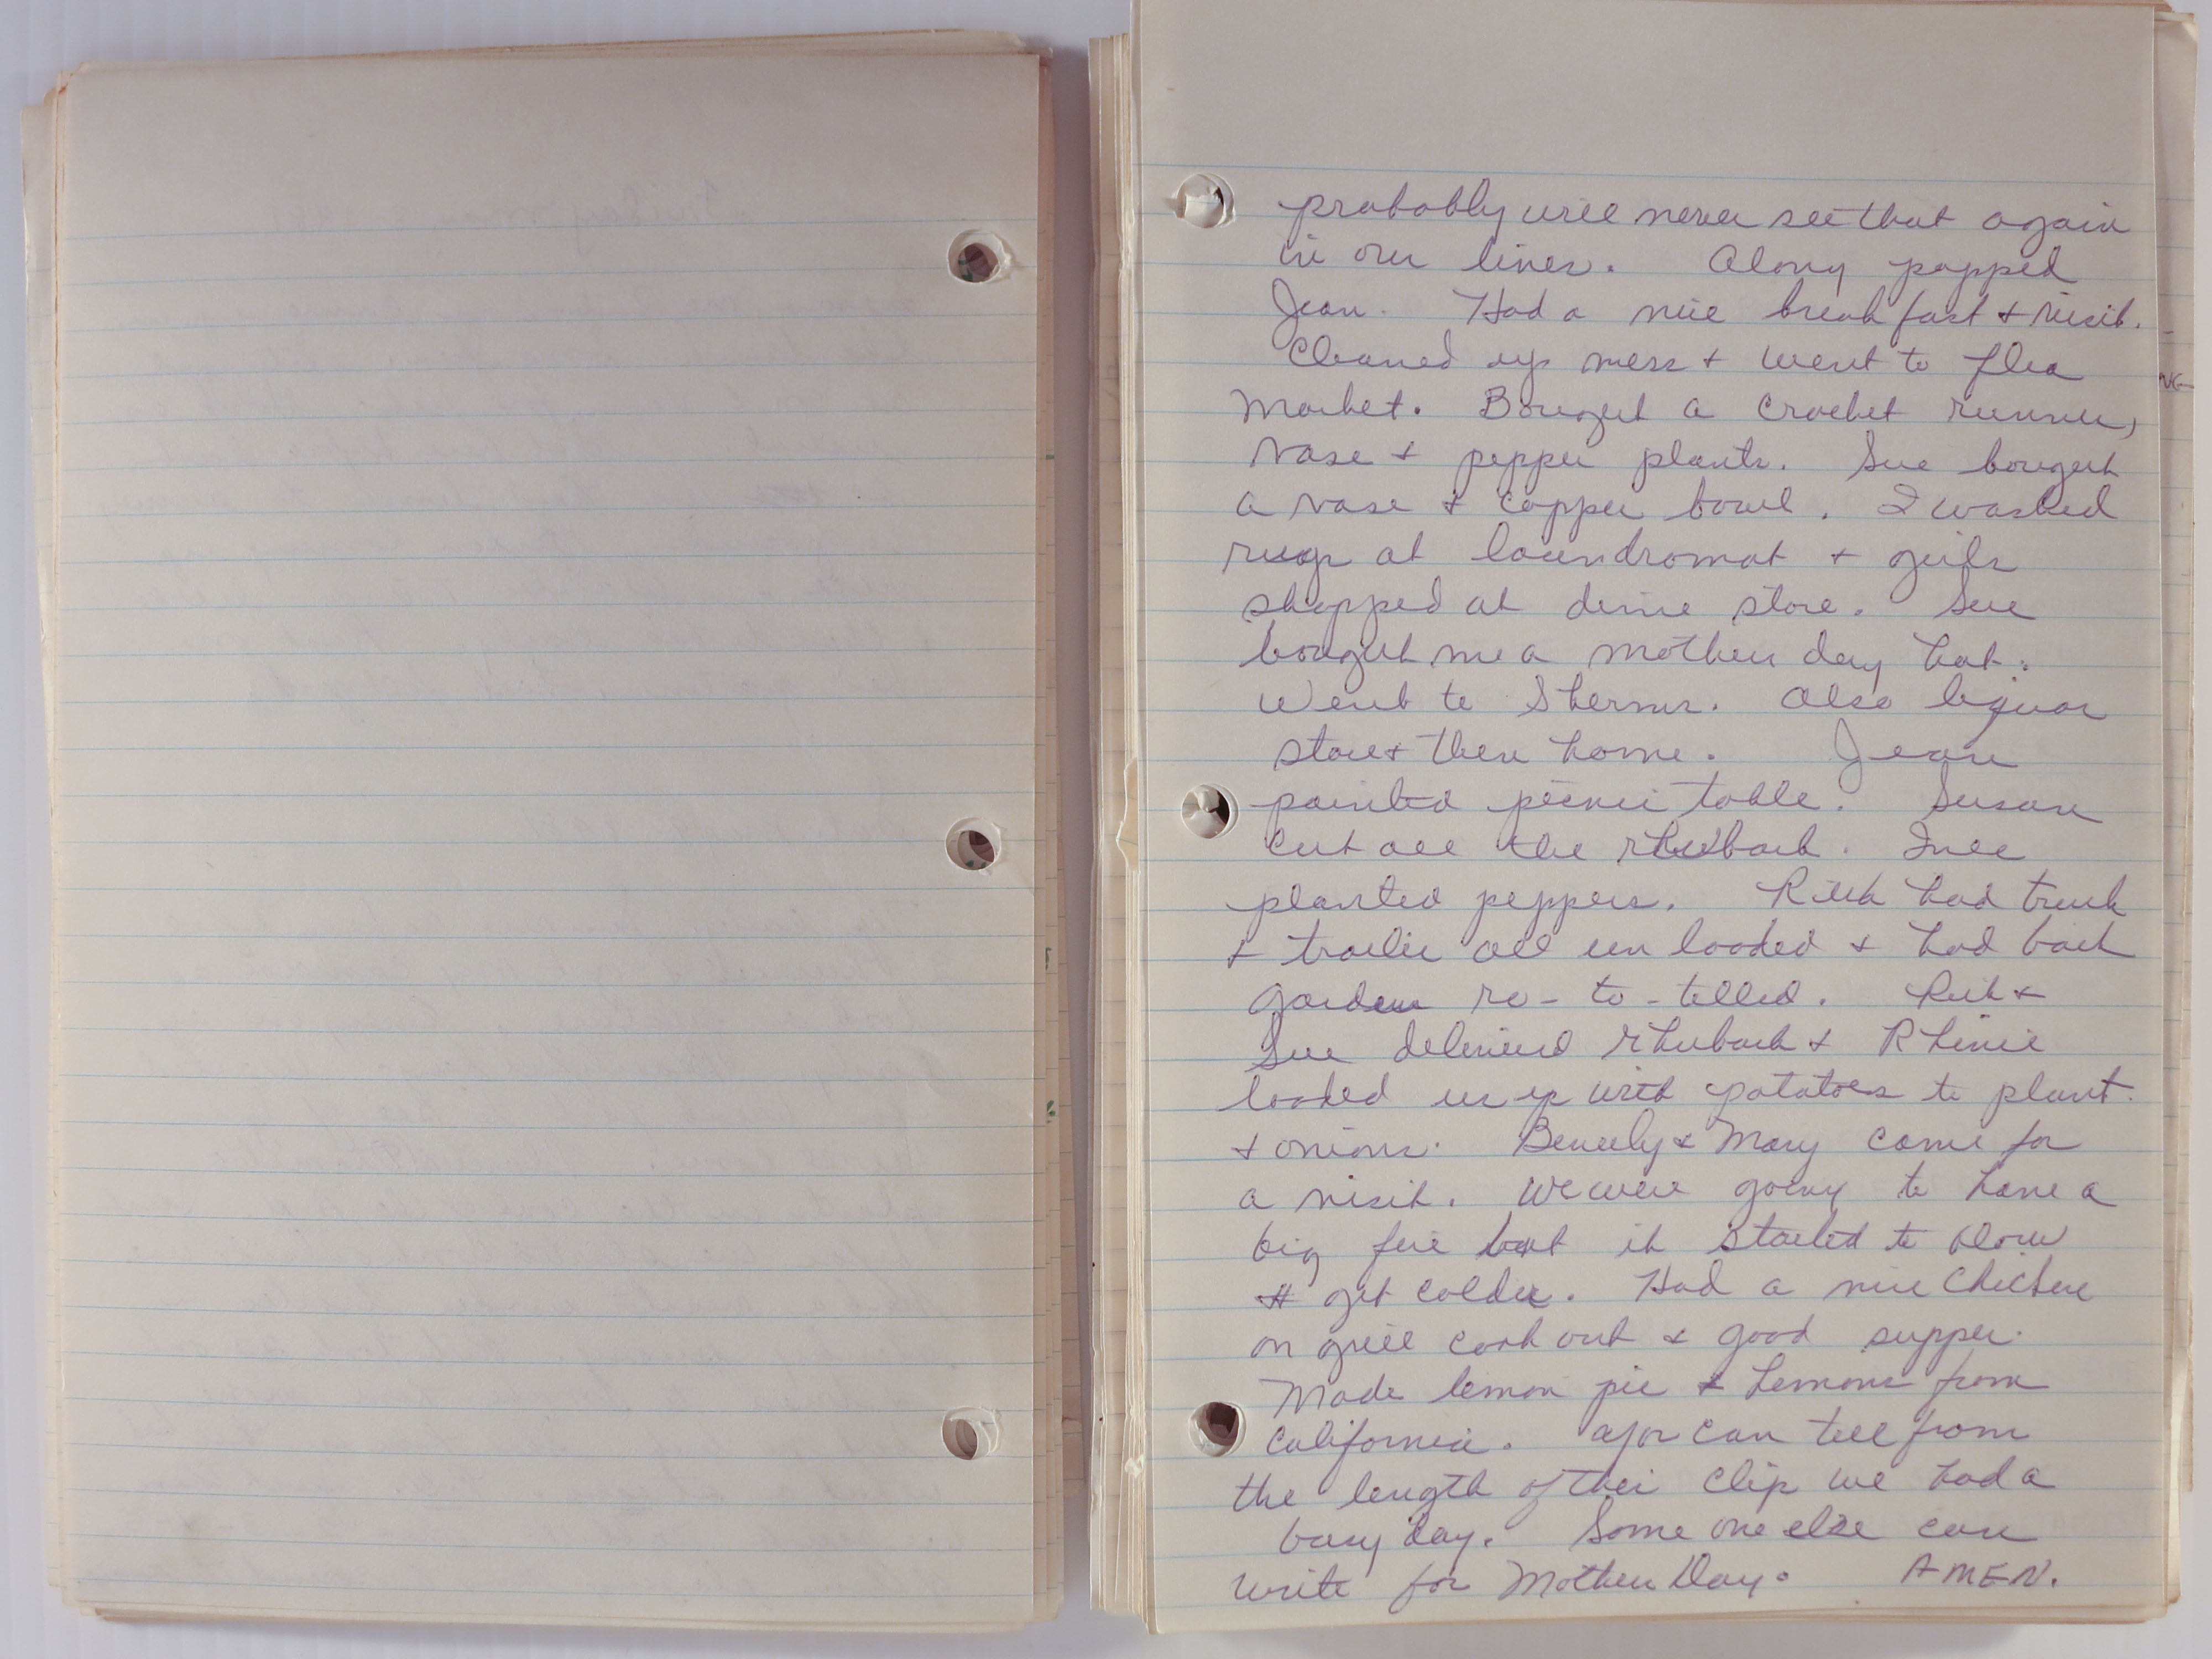 probably will never see that again
in our lives. Along popped
Jean. Had a nice breakfast & visit.
Cleaned up mess & went to flea
market. Bought a crochet runner,
vase & pepper plants. Sue bought
a vase & copper bowl. I washed
rugs at laundromat & girls
shopped at dime store. Sue
bought me a mother day hat.
Went to Sherms. Also liquor
store & then home. Jean
painted picnic table. Susan
cut all the rhubarb.
planted peppers. Rick had truck
& trailer all un loaded & had back
garden ro-to-tilled. Rick &
Sue delivered rhubarb & Rhinie
loaded us up with potatoes to plant.
& onions. Beverly & Mary came for
a visit. We were going to have a
big fire but it started to blow
& get colder. Had a nice chicken
on grill cook out & good supper.
Made lemon pie & Lemons from
California. can tell from
the length of this clip we had a
busy day. Some one else can
write for Mother Day. AMEN.